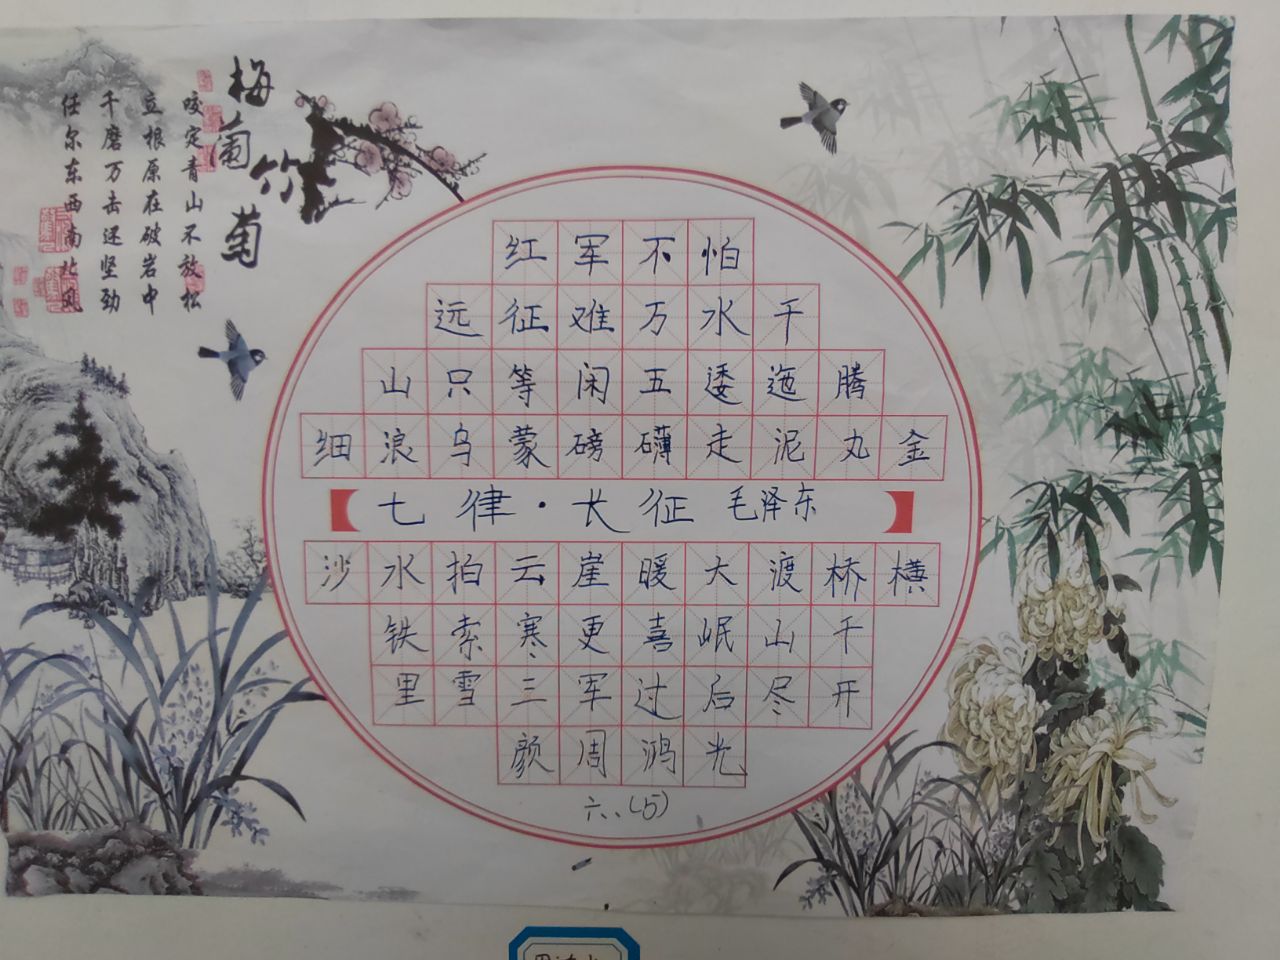 梅
菊
竹
菊
咬定青山不放松
立根原在破岩中
千磨万击还坚劲
任尔东西南北风
红军不怕
远征难万水千
山只等闲五逶迤腾
细浪乌蒙磅礴走泥丸金
七律·长征 毛泽东
沙水拍云崖暖大渡桥横
铁索寒更喜岷山千
里雪三军过后尽开
颜周鸿光
六、(5)